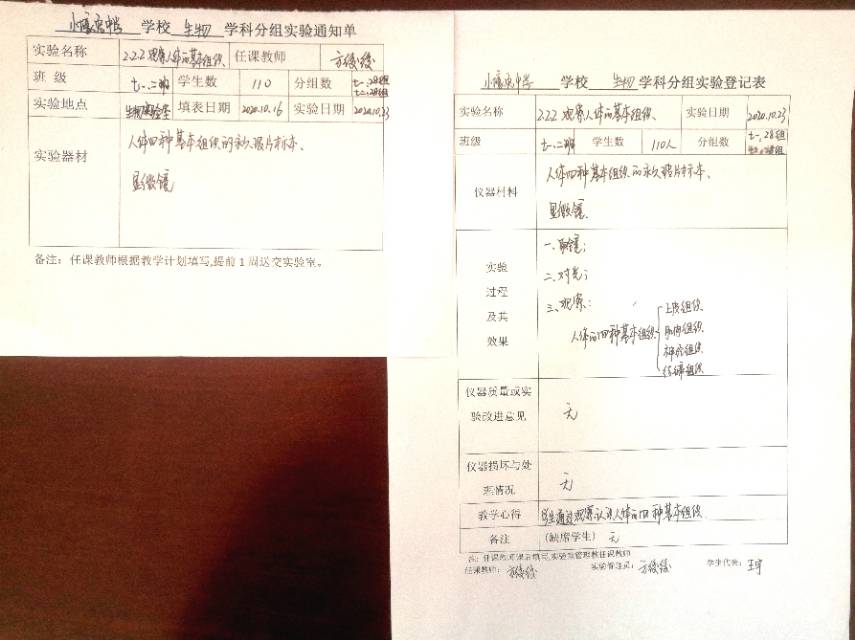 学校 生物 学科分组实验通知单
实验名称 2.2.2 观察人体的基本组织 任课教师 方俊俊
班 级 七一、二班 学生数 110 分组数 七一、28组
七二、28组
实验地点 生物实验室 填表日期 2020.10.16 实验日期 2020.10.23
实验器材 人体四种基本组织的永久玻片标本、
显微镜
备注：任课教师根据教学计划填写,提前1周送交实验室。
学校 生物 学科分组实验登记表
实验名称 2.2.2 观察人体的基本组织、 实验日期 2020.10.23
班级 七一、二班 学生数 110人 分组数 七一、28组
仪器材料 人体四种基本组织的永久玻片标本、
显微镜、
实验过程及其效果
一、取镜；
二、对光；
三、观察：
人体的四种基本组织
上皮组织
肌肉组织
神经组织
结缔组织
仪器质量或实验改进意见 无
仪器损坏与处理情况 无
教学心得 通过观察认识人体的四种基本组织
备注 (缺席学生) 无
任课教师： 实验管理员： 学生代表：王宇